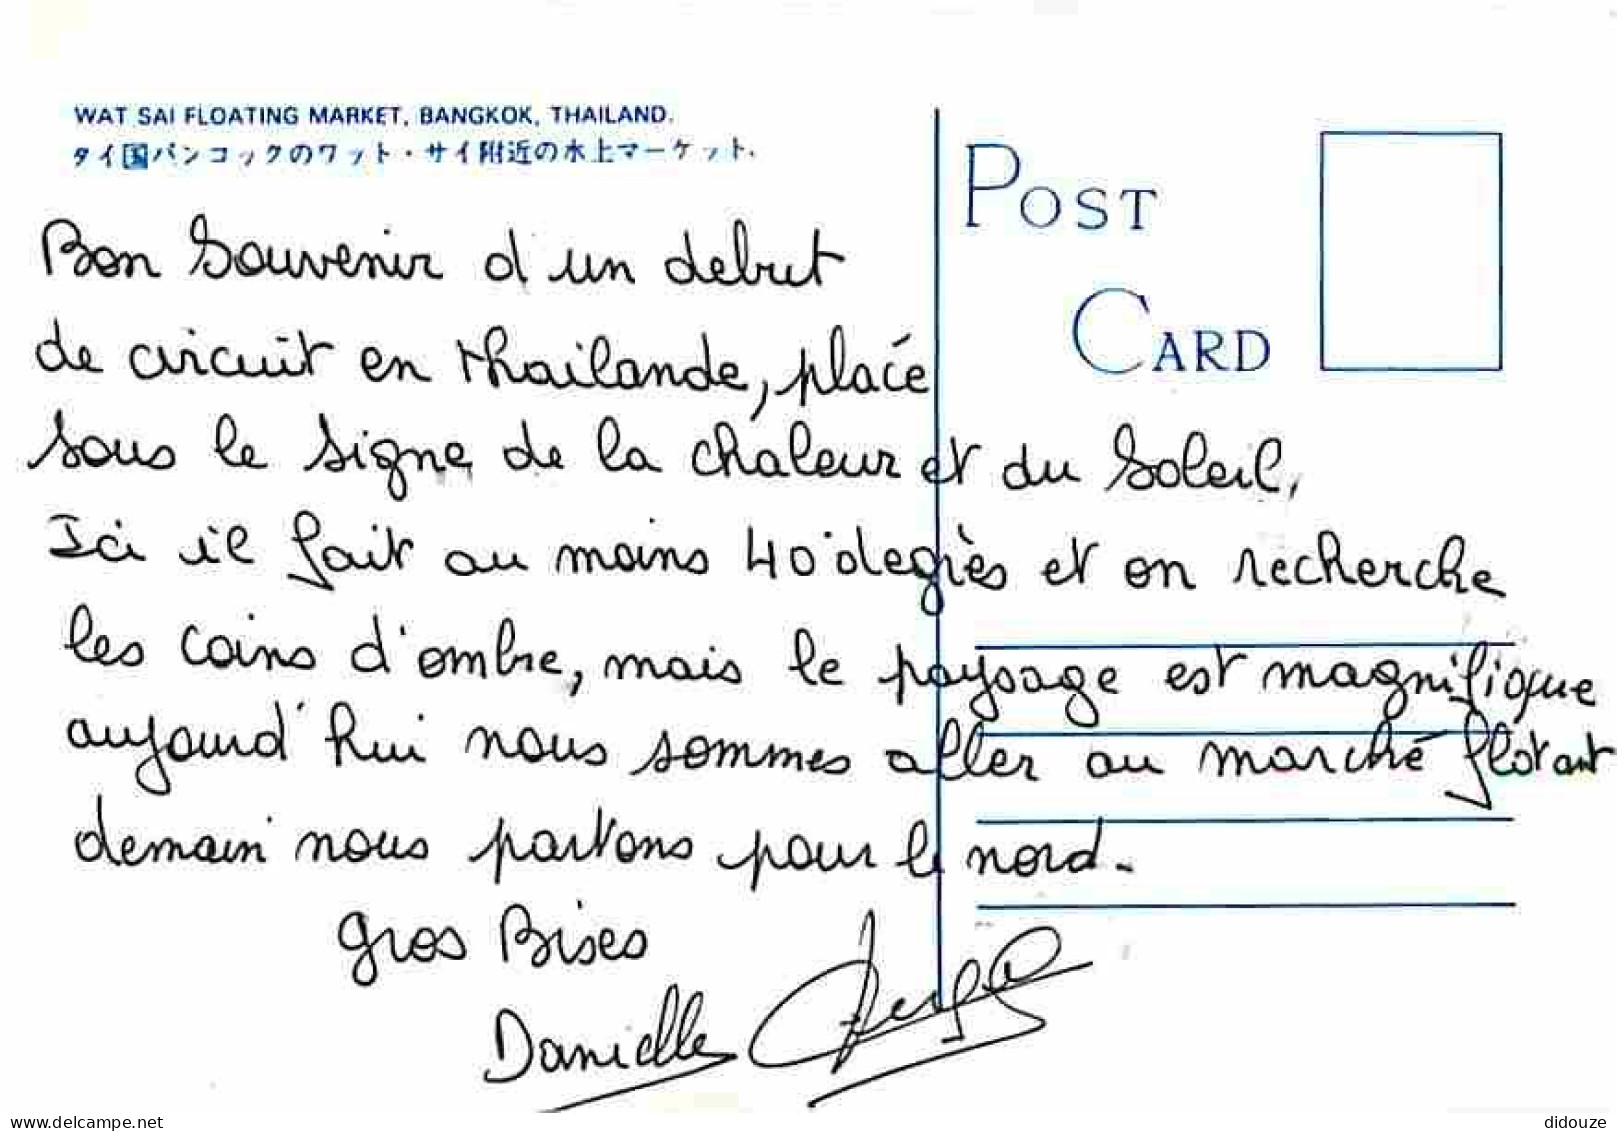 WAT SAI FLOATING MARKET, BANGKOK, THAILAND.
タイ国バンコックのワット・サイ附近の水上マーケット.
POST
CARD
Bon Souvenir d'un debut
de circuit en thailande, placée
sous le signe de la chaleur et du Soleil,
Ici il fait au moins 40° degrès et on recherche
les coins d'ombre, mais le paysage est magnifique
aujourd'hui nous sommes aller au marché flotant
demain nous partons pour le nord.
gros Bises
Danielle
www.delcampe.net
didouze